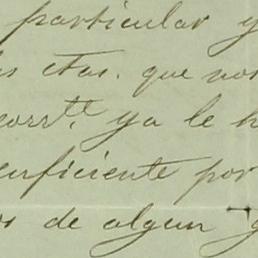 particular y
etas. que no
corr.te ya le h
suficiente por
de algun g